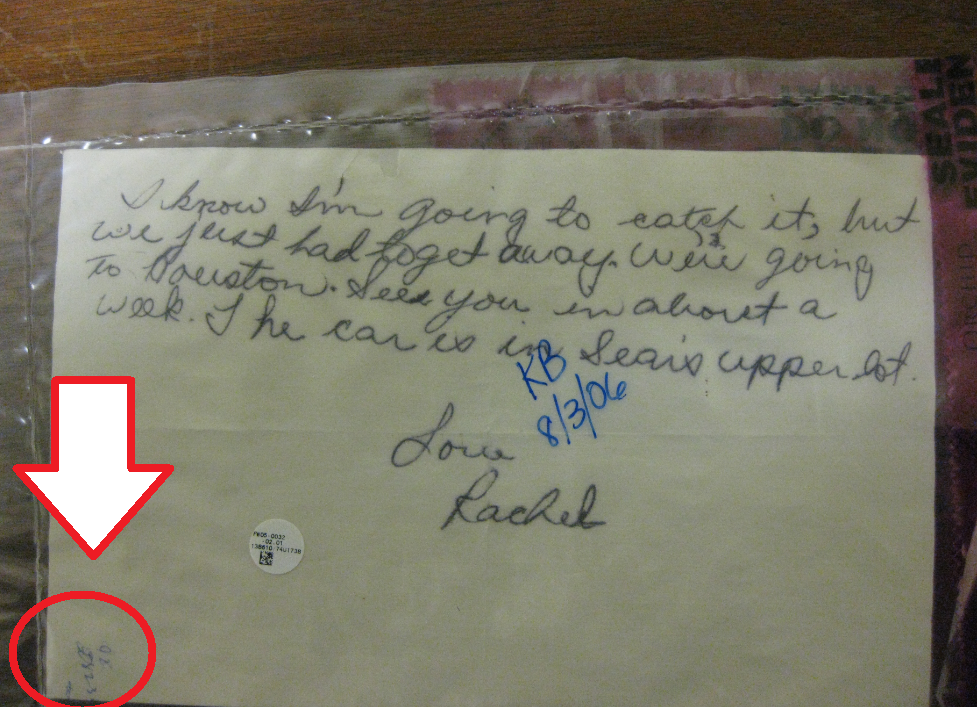 I know I'm going to catch it, but
we just had to get away. We're going
to Houston. See you in about a
week. The car is in Sears upper lot.
KB
8/3/06
Love
Rachel
SEALE
IDEN